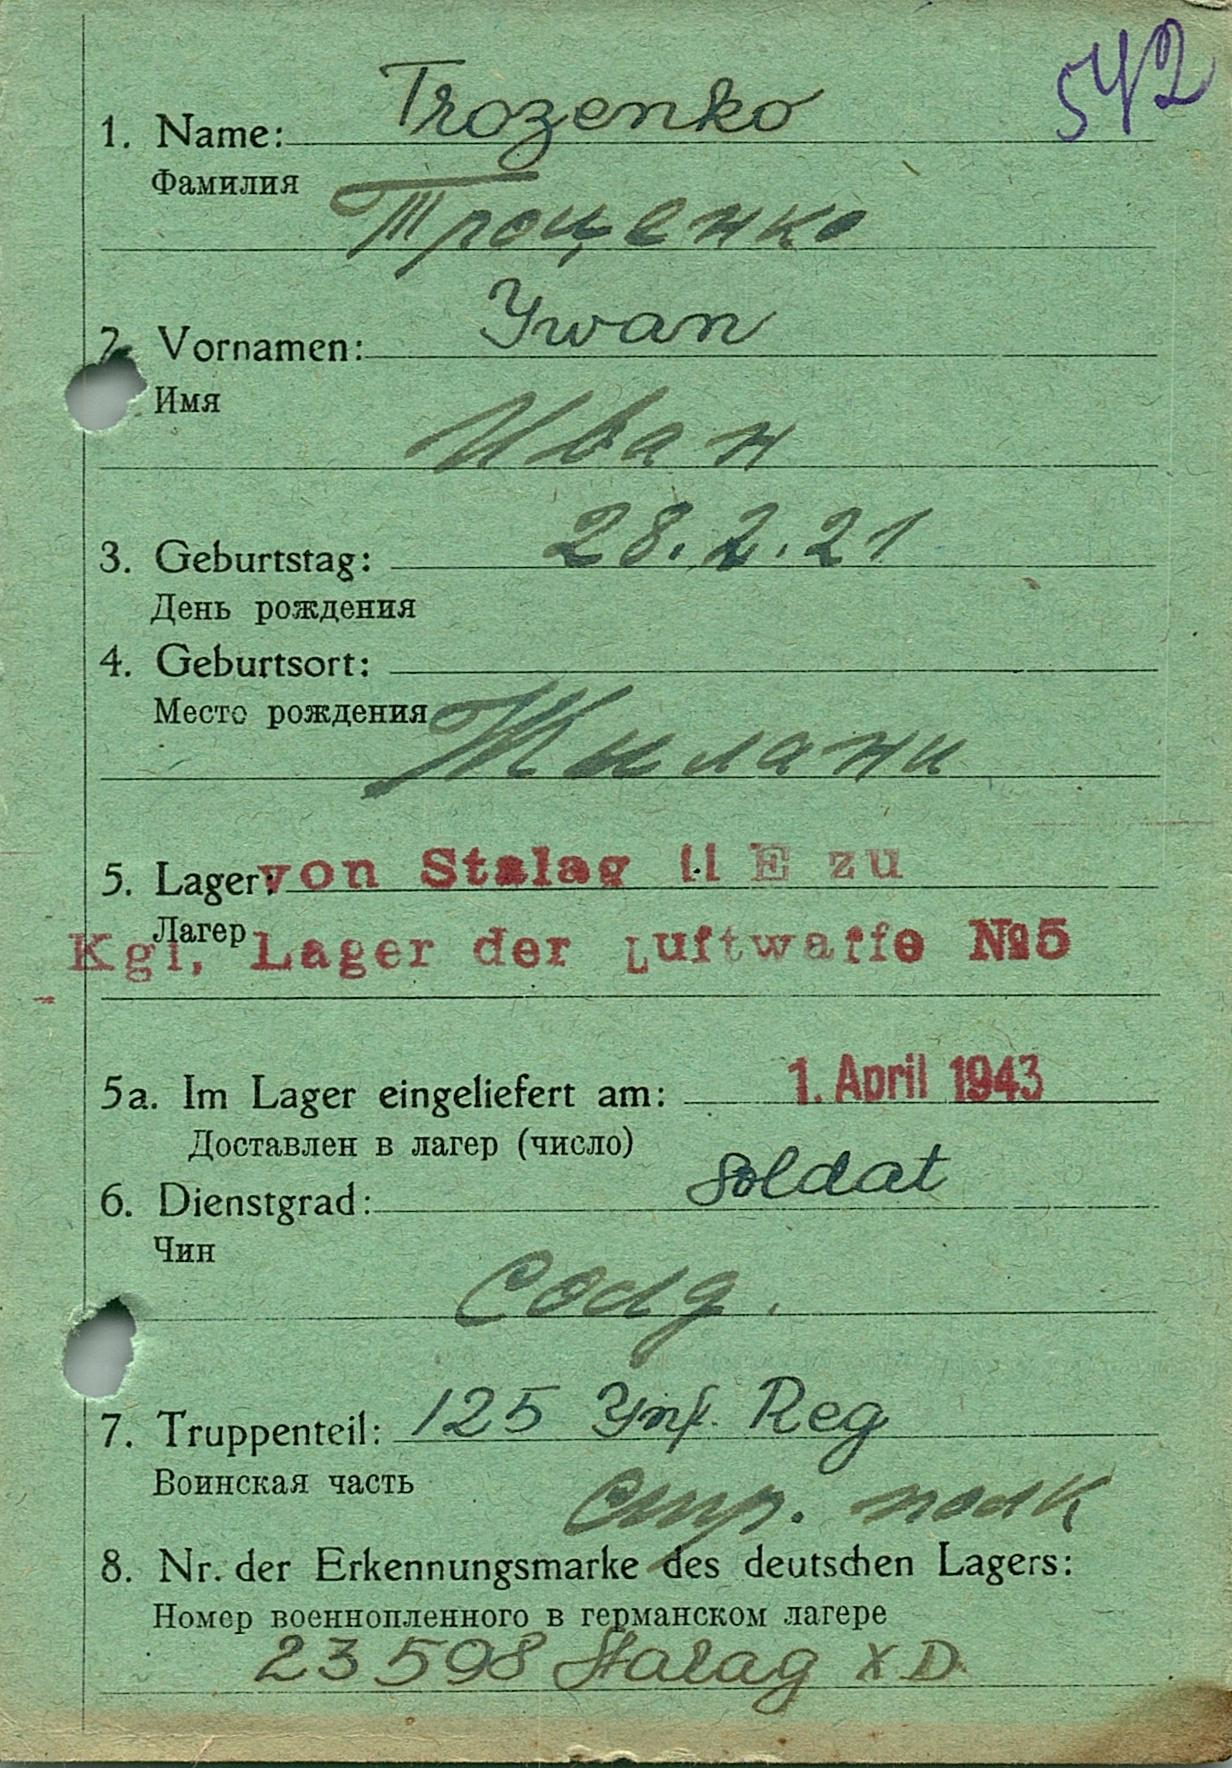 542
1. Name: Trozenko
Фамилия
Троценко
2. Vornamen: Ywan
Имя
Иван
3. Geburtstag: 28.2.21
День рождения
4. Geburtsort:
Место рождения
Жилани
5. Lager: von Stalag II E zu
Лагер
Kgf. Lager der Luftwaffe №5
5a. Im Lager eingeliefert am: 1. April 1943
Доставлен в лагер (число)
6. Dienstgrad: Soldat
Чин
Солд.
7. Truppenteil: 125 Ynf. Reg
Воинская часть
Стр. полк
8. Nr. der Erkennungsmarke des deutschen Lagers:
Номер военнопленного в германском лагере
23598 Stalag X D